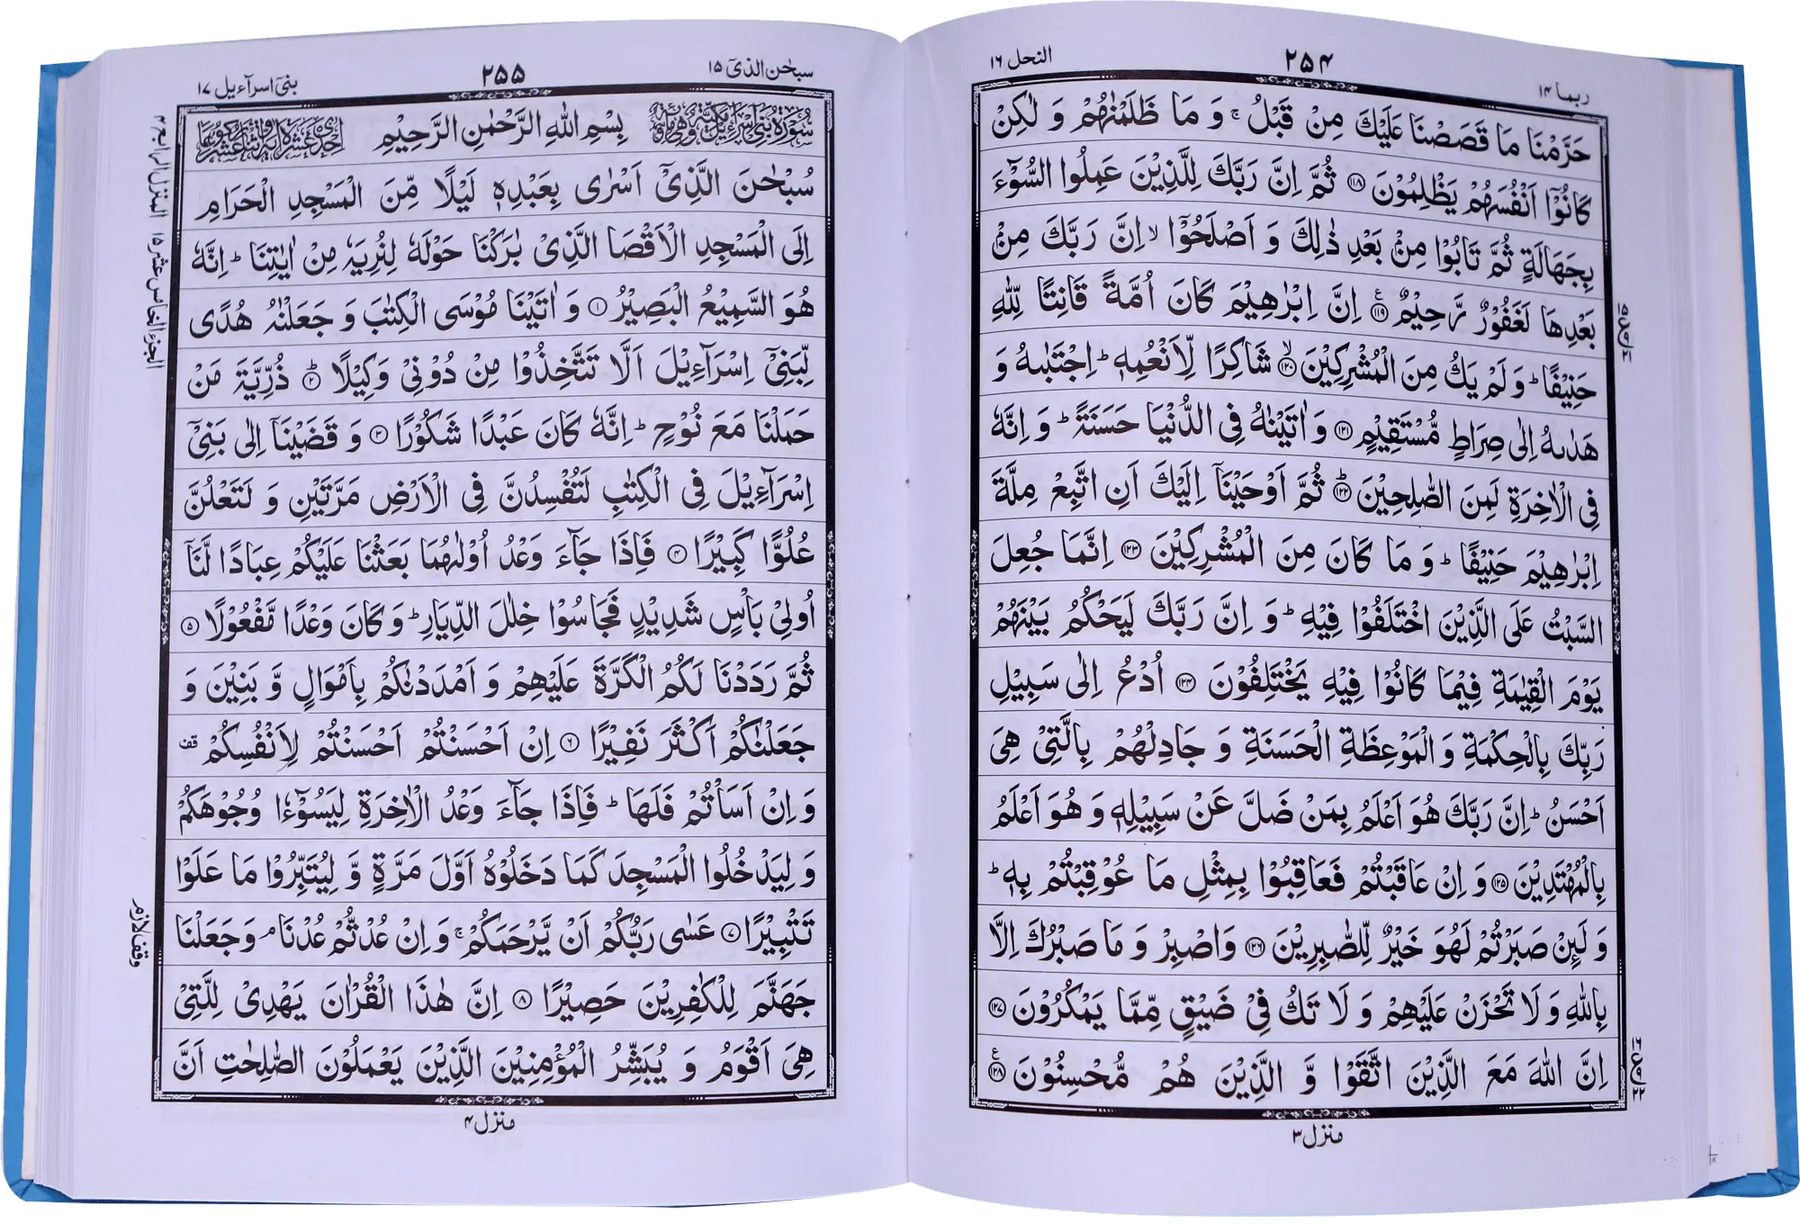 ربما ١۴
٢۵۴
النحل ١٦
حَرَّمْنَا مَا قَصَصْنَا عَلَيْكَ مِنْ قَبْلُ ۚ وَ مَا ظَلَمْنٰهُمْ وَ لٰكِنْ
كَانُوْۤا اَنْفُسَهُمْ يَظْلِمُوْنَ ﴿١١٨﴾ ثُمَّ اِنَّ رَبَّكَ لِلَّذِيْنَ عَمِلُوا السُّوْٓءَ
بِجَهَالَةٍ ثُمَّ تَابُوْا مِنْۢ بَعْدِ ذٰلِكَ وَ اَصْلَحُوْۤا ۙ اِنَّ رَبَّكَ مِنْۢ
بَعْدِهَا لَغَفُوْرٌ رَّحِيْمٌ ﴿١١٩﴾ ع اِنَّ اِبْرٰهِيْمَ كَانَ اُمَّةً قَانِتًا لِّلّٰهِ
حَنِيْفًا ؕ وَ لَمْ يَكُ مِنَ الْمُشْرِكِيْنَ ﴿١٢٠﴾ ۙ شَاكِرًا لِّاَنْعُمِهٖ ؕ اِجْتَبٰىهُ وَ
هَدٰىهُ اِلٰى صِرَاطٍ مُّسْتَقِيْمٍ ﴿١٢١﴾ وَ اٰتَيْنٰهُ فِى الدُّنْيَا حَسَنَةً ؕ وَ اِنَّهٗ
فِى الْاٰخِرَةِ لَمِنَ الصّٰلِحِيْنَ ﴿١٢٢﴾ ؕ ثُمَّ اَوْحَيْنَاۤ اِلَيْكَ اَنِ اتَّبِعْ مِلَّةَ
اِبْرٰهِيْمَ حَنِيْفًا ؕ وَ مَا كَانَ مِنَ الْمُشْرِكِيْنَ ﴿١٢٣﴾ اِنَّمَا جُعِلَ
السَّبْتُ عَلَى الَّذِيْنَ اخْتَلَفُوْا فِيْهِ ؕ وَ اِنَّ رَبَّكَ لَيَحْكُمُ بَيْنَهُمْ
يَوْمَ الْقِيٰمَةِ فِيْمَا كَانُوْا فِيْهِ يَخْتَلِفُوْنَ ﴿١٢۴﴾ اُدْعُ اِلٰى سَبِيْلِ
رَبِّكَ بِالْحِكْمَةِ وَ الْمَوْعِظَةِ الْحَسَنَةِ وَ جَادِلْهُمْ بِالَّتِيْ هِيَ
اَحْسَنُ ؕ اِنَّ رَبَّكَ هُوَ اَعْلَمُ بِمَنْ ضَلَّ عَنْ سَبِيْلِهٖ وَ هُوَ اَعْلَمُ
بِالْمُهْتَدِيْنَ ﴿١٢۵﴾ وَ اِنْ عَاقَبْتُمْ فَعَاقِبُوْا بِمِثْلِ مَا عُوْقِبْتُمْ بِهٖ ؕ
وَ لَئِنْ صَبَرْتُمْ لَهُوَ خَيْرٌ لِّلصّٰبِرِيْنَ ﴿١٢٦﴾ وَاصْبِرْ وَ مَا صَبْرُكَ اِلَّا
بِاللّٰهِ وَ لَا تَحْزَنْ عَلَيْهِمْ وَ لَا تَكُ فِيْ ضَيْقٍ مِّمَّا يَمْكُرُوْنَ ﴿١٢٧﴾
اِنَّ اللّٰهَ مَعَ الَّذِيْنَ اتَّقَوْا وَّ الَّذِيْنَ هُمْ مُّحْسِنُوْنَ ﴿١٢٨﴾ ع
منزل ٣
سبحٰن الذیٓ ١۵
٢۵۵
بنیٓ اسرآءیل ١٧
بِسْمِ اللّٰهِ الرَّحْمٰنِ الرَّحِيْمِ
سُبْحٰنَ الَّذِيْۤ اَسْرٰى بِعَبْدِهٖ لَيْلًا مِّنَ الْمَسْجِدِ الْحَرَامِ
اِلَى الْمَسْجِدِ الْاَقْصَا الَّذِيْ بٰرَكْنَا حَوْلَهٗ لِنُرِيَهٗ مِنْ اٰيٰتِنَا ؕ اِنَّهٗ
هُوَ السَّمِيْعُ الْبَصِيْرُ ﴿١﴾ وَ اٰتَيْنَا مُوْسَى الْكِتٰبَ وَ جَعَلْنٰهُ هُدًى
لِّبَنِيْۤ اِسْرَآءِيْلَ اَلَّا تَتَّخِذُوْا مِنْ دُوْنِيْ وَكِيْلًا ﴿٢﴾ ؕ ذُرِّيَّةَ مَنْ
حَمَلْنَا مَعَ نُوْحٍ ؕ اِنَّهٗ كَانَ عَبْدًا شَكُوْرًا ﴿٣﴾ وَ قَضَيْنَاۤ اِلٰى بَنِيْۤ
اِسْرَآءِيْلَ فِى الْكِتٰبِ لَتُفْسِدُنَّ فِى الْاَرْضِ مَرَّتَيْنِ وَ لَتَعْلُنَّ
عُلُوًّا كَبِيْرًا ﴿۴﴾ فَاِذَا جَآءَ وَعْدُ اُوْلٰىهُمَا بَعَثْنَا عَلَيْكُمْ عِبَادًا لَّنَاۤ
اُولِيْ بَاْسٍ شَدِيْدٍ فَجَاسُوْا خِلٰلَ الدِّيَارِ ؕ وَ كَانَ وَعْدًا مَّفْعُوْلًا ﴿۵﴾
ثُمَّ رَدَدْنَا لَكُمُ الْكَرَّةَ عَلَيْهِمْ وَ اَمْدَدْنٰكُمْ بِاَمْوَالٍ وَّ بَنِيْنَ وَ
جَعَلْنٰكُمْ اَكْثَرَ نَفِيْرًا ﴿٦﴾ اِنْ اَحْسَنْتُمْ اَحْسَنْتُمْ لِاَنْفُسِكُمْ قف
وَ اِنْ اَسَاْتُمْ فَلَهَا ؕ فَاِذَا جَآءَ وَعْدُ الْاٰخِرَةِ لِيَسُوْٓءٗا وُجُوْهَكُمْ
وَ لِيَدْخُلُوا الْمَسْجِدَ كَمَا دَخَلُوْهُ اَوَّلَ مَرَّةٍ وَّ لِيُتَبِّرُوْا مَا عَلَوْا
تَتْبِيْرًا ﴿٧﴾ عَسٰى رَبُّكُمْ اَنْ يَّرْحَمَكُمْ ۚ وَ اِنْ عُدْتُّمْ عُدْنَا ۘ وَ جَعَلْنَا
جَهَنَّمَ لِلْكٰفِرِيْنَ حَصِيْرًا ﴿٨﴾ اِنَّ هٰذَا الْقُرْاٰنَ يَهْدِيْ لِلَّتِيْ
هِيَ اَقْوَمُ وَ يُبَشِّرُ الْمُؤْمِنِيْنَ الَّذِيْنَ يَعْمَلُوْنَ الصّٰلِحٰتِ اَنَّ
منزل ۴
المنزل الرابع ۴
الجزء الخامس عشر ١۵
وقف لازم